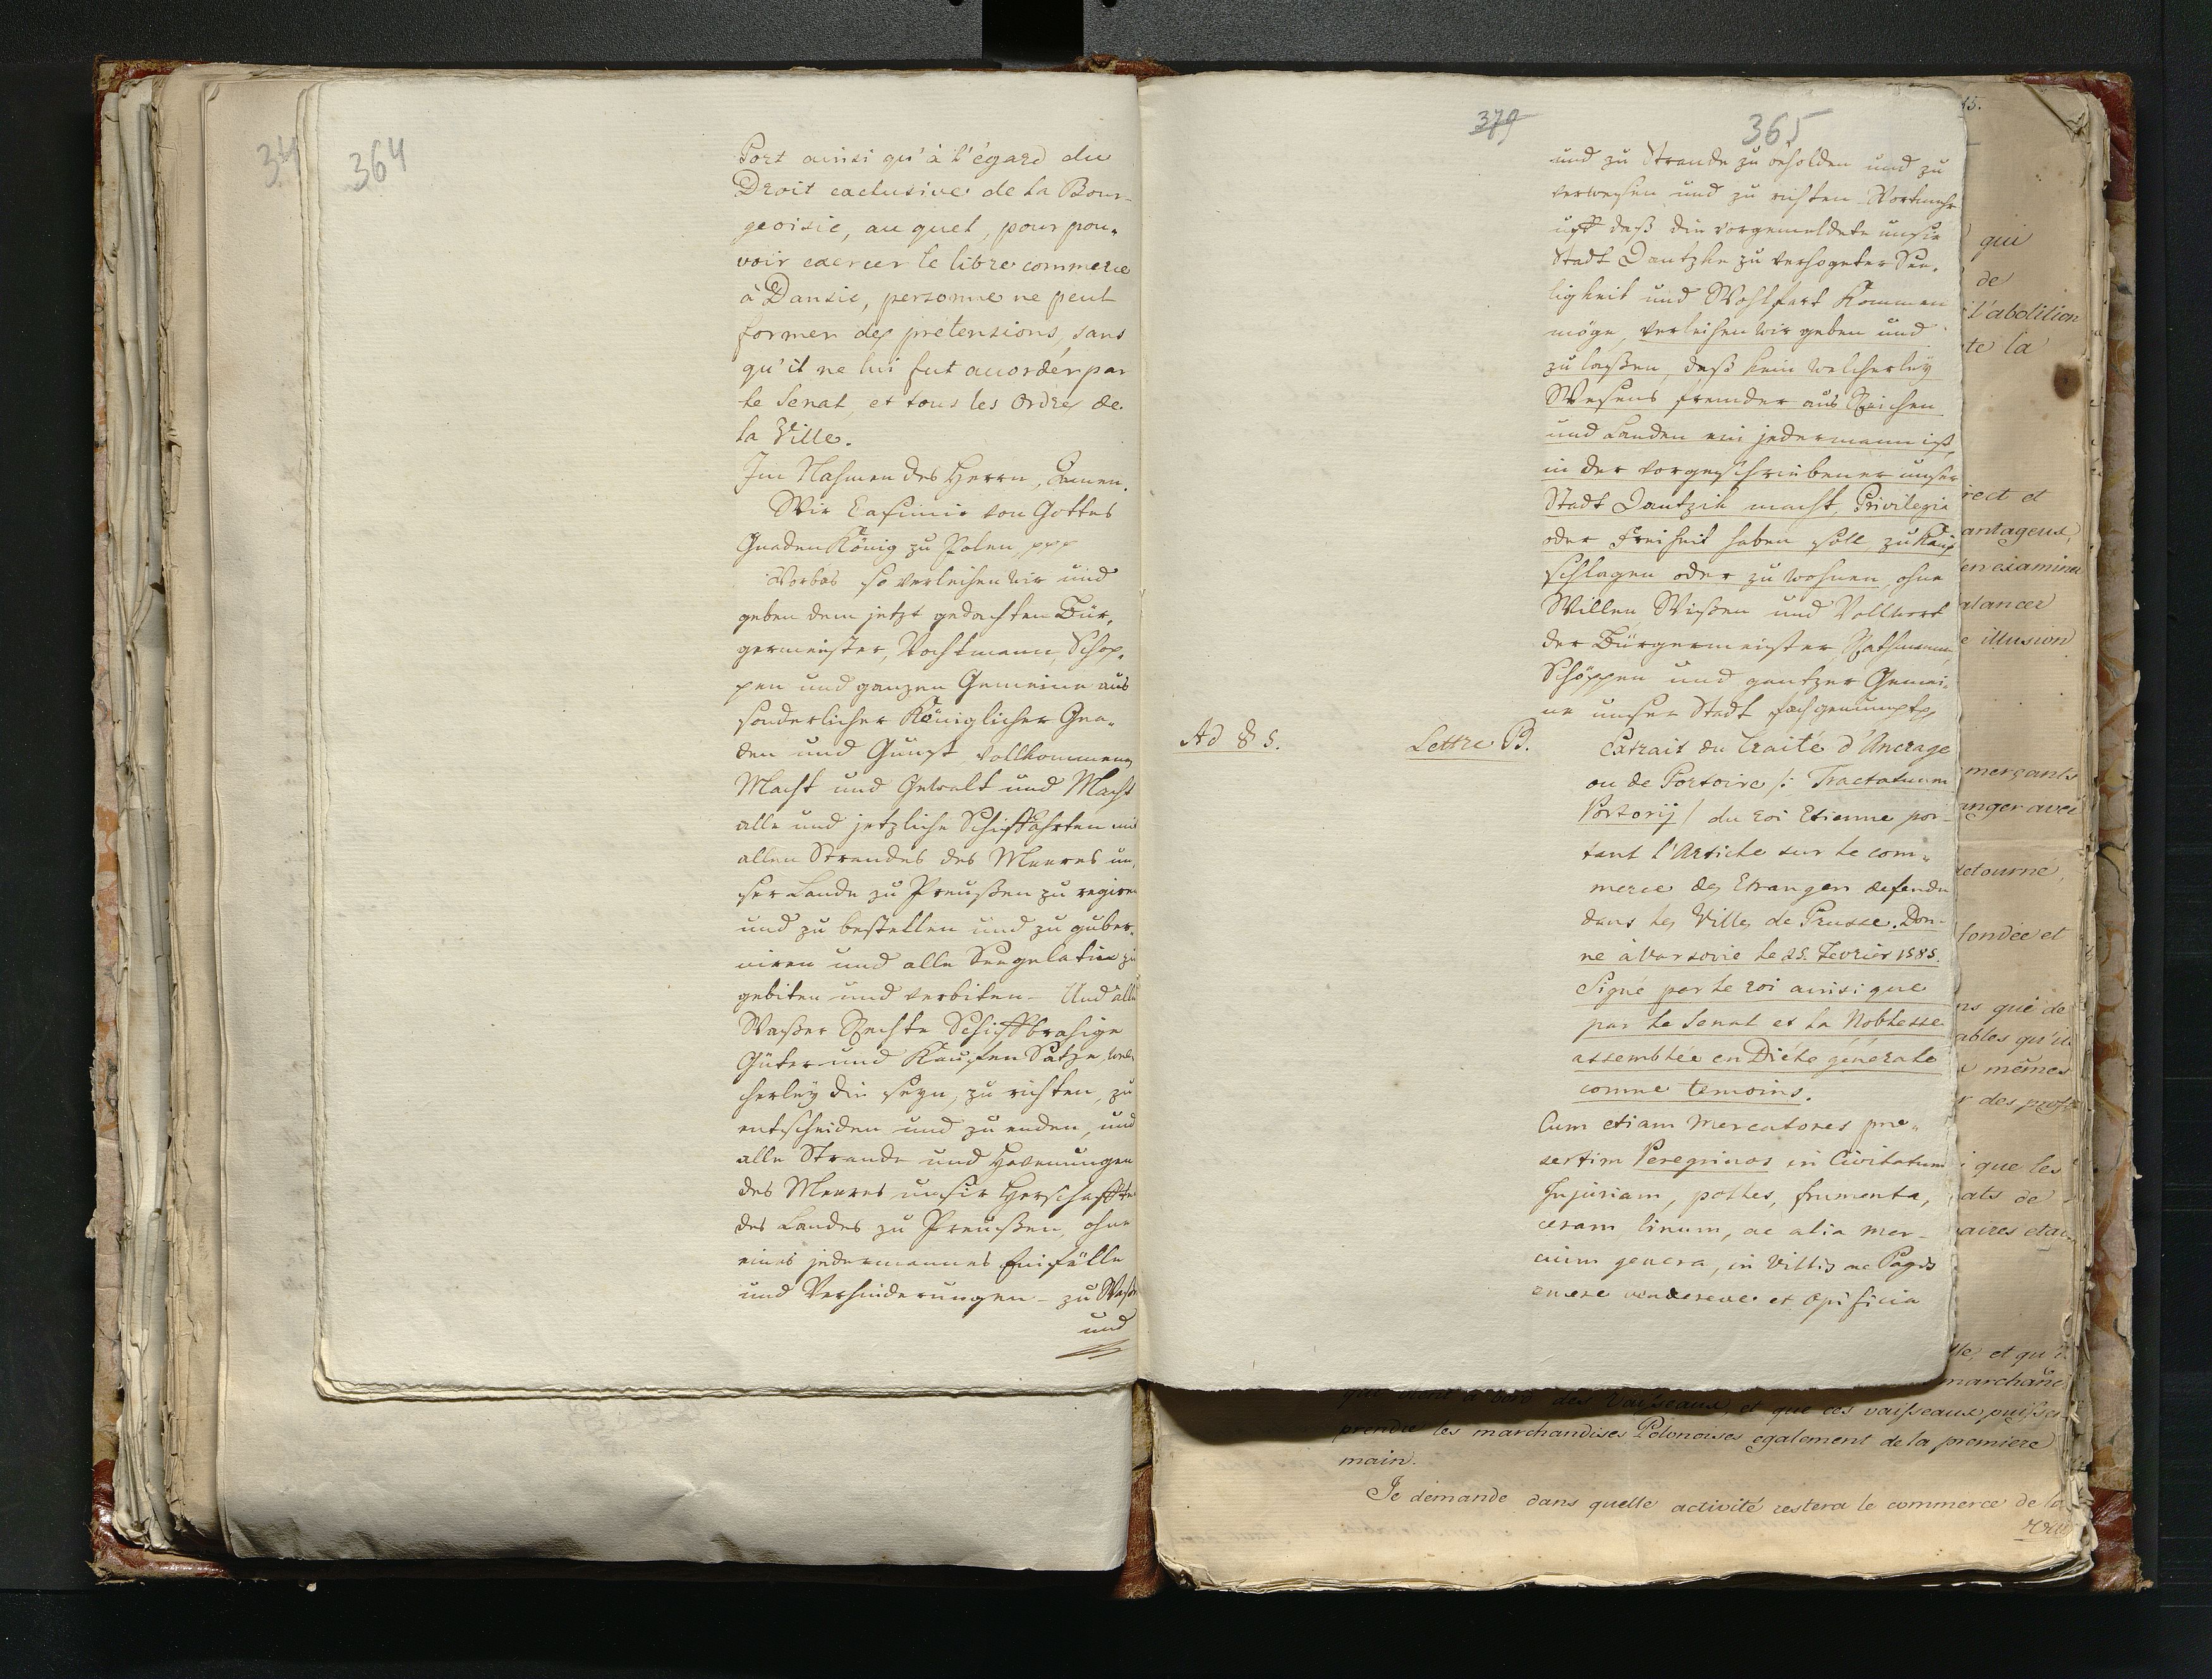 34
364
Port ainsi qu'à l'égard du
Droit exclusive de la Bour-
geoisie, au quel, pour pou-
voir exercer le libre commerce
à Dansic, personne ne peut
former des prétensions, sans
qu'il ne lui fut accordér par
le Senat, et tous les Ordres de
la Ville.
Im Nahmen des Herrn, Amen.
Wir Casimir von Gottes
Gnaden König zu Polen ppp
Vorbas so verleihen wir und
geben dem jetzt gedachten Bür,
germeister, Rathmann, Schop,
pen und ganzen Gemeine aus
sonderlicher Königlicher Gna-
den und Gunst vollkommene
Macht und Gewalt und Macht
alle und jetzliche Schiffahrten mit
allen Strandes des Meeres un,
ser Lande zu Preußen zu regiren
und zu bestellen und zu guber,
niren und alle Seegelation zu
gebiten und verbiten - Und alle
Waßer Rechte Schiffbrachige
Güter und Sätze, wel,
cherley die seyn, zu richten, zu
entscheiden und zu enden, und
alle Strande und Havenungen
des Meeres unsir Herschafften
des Landes zu Preußen, ohne
eines jedermannes Einfälle
und Verhinderungen - zu Waßer
und
379
365
und zu Strande zu beholden und zu
verwesen und zu richten Vortmehr
uff daß die vorgemeldete unsir
Stadt Dantzke zu See,
ligkeit und Wohlfart kommen
möge, verleihen wir geben und
zulaßen, daß kein welcherley
Wesens fremder aus Reichen
und Landen ein jedermann ist,
in der vorgeschriebener unser
Stadt Dantzik macht, Privilegia
oder Freiheit haben soll, zu Kauf
schlagen oder zu wohnen, ohne
Willen Wißen und Vollwort
der Bürgermeister Rathmann,
Schöppen und gantzer Gemei,
ne unser Stadt
Ad § 5.
Lettre B.
Extrait du Traité d'Ancrage
ou de Portoire /: Tractatuum
Portorij / du roi Etienne por-
tant l'Article sur le com-
merce des Etrangers defendu
dans les Villes de Prusse. Don-
né à Varsovie le 25. Fevrier 1585.
Signé par le roi ainsi que
par le Senat et la Noblesse
assemblée en Diéte générale
comme temoins.
Cum etiam Mercatores prę-
sertim Peregrinos in Civitatum
Injuriam, pelles, frumenta,
ceram linum, ac alia mer-
cium genera, in Villis ac Pagis
emere vendereve et opificia
15.
qui
de
l'abolition
te la
rect et
antageus,
en examiner
alancer
e illusion
merçants
anger avec
detourné,
fondée et
ns que de
ables qu'il
mêmes
r des profi
i que les
ats de
aires et
lle, et qu'i
marchand
à bord des Vaisseaux, et que ces vaisseaux puisse
prendre les marchandises Polonoises egalement de la premiere
main.
Je demande dans quelle activité restera le commerce de la